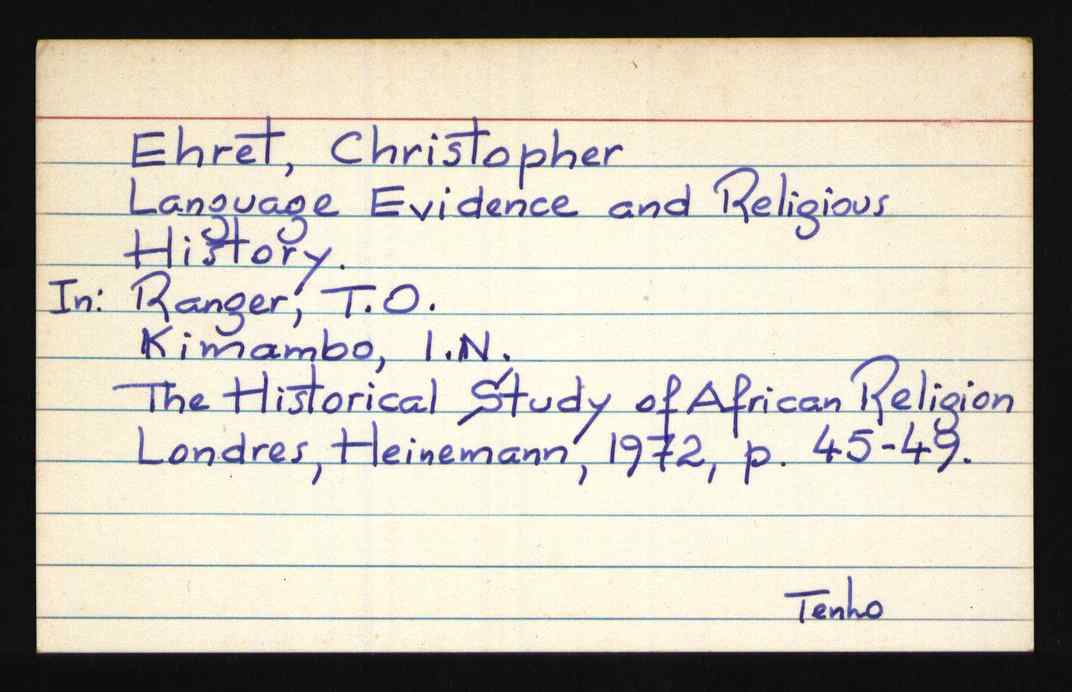 Ehret, Christopher
Language Evidence and Religious
History.
In: Ranger, T.O.
Kimambo, I.N.
The Historical Study of African Religion
Londres, Heinemann, 1972, p. 45-49.
Tenho